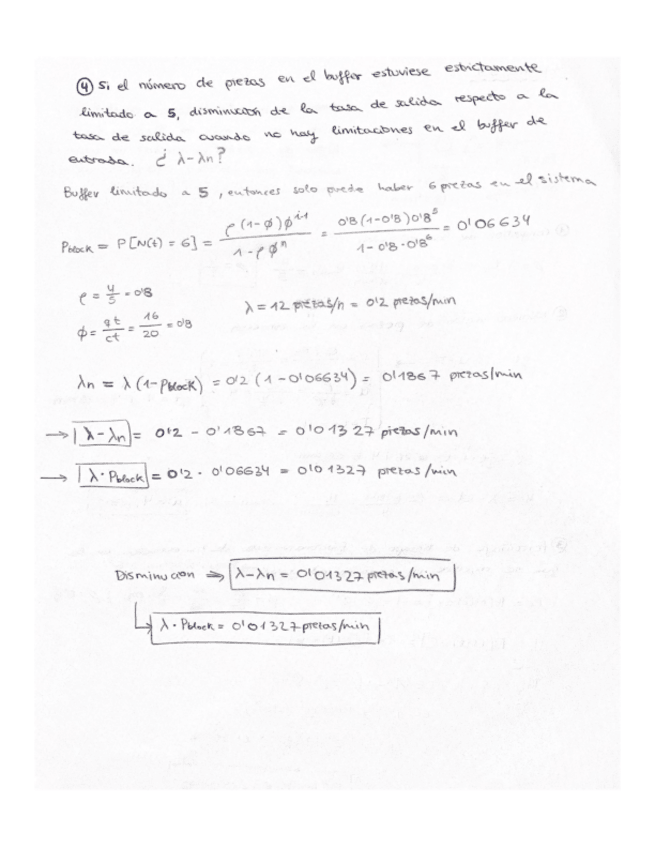 ④ Si el número de piezas en el buffer estuviese estrictamente
limitado a 5, disminución de la tasa de salida respecto a la
tasa de salida cuando no hay limitaciones en el buffer de
entrada. ¿ λ-λn?
Buffer limitado a 5, entonces solo puede haber 6 piezas en el sistema
Pblock = P[N(t) = 6] = ρ(1-φ)φ^(i-1) / (1-ρφ^n) = 0'8(1-0'8)0'8^5 / (1-0'8·0'8^6) = 0'06634
ρ = 4/5 = 0'8
λ = 12 piezas/h = 0'2 piezas/min
φ = qt/ct = 16/20 = 0'8
λn = λ(1-Pblock) = 0'2 (1-0'06634) = 0'1867 piezas/min
→ |λ-λn| = 0'2 - 0'1867 = 0'01327 piezas/min
→ |λ·Pblock| = 0'2 · 0'06634 = 0'01327 piezas/min
Disminucion ⇒ λ-λn = 0'01327 piezas/min
↳ λ·Pblock = 0'01327 piezas/min